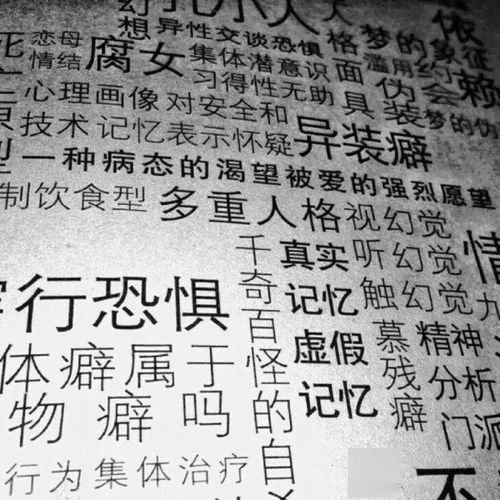 幻
孔小人
依赖
想异性交谈恐惧
格
梦的象征
恋母
情结
腐女
集体潜意识
面
滥用
约会
习得性无助
具
伪装
梦的伪
心理画像
对安全和
异装癖
技术
记忆表示怀疑
型一种病态的渴望被爱的强烈愿望
制饮食型
多重人格
视幻觉
千奇百怪的自杀
真实
记忆
听幻觉
情
行恐惧
触幻觉
虚假
记忆
慕残癖
精神
分析
门派
体癖属于
物癖吗
行为集体治疗
不